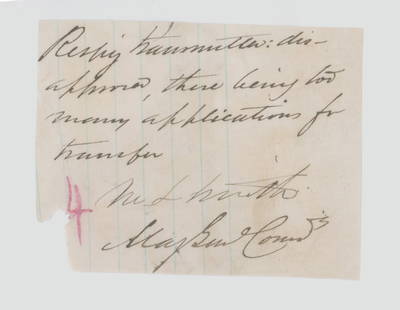 Respy transmitted: dis-
approved, there being too
many applications for
transfer
M L Smith
Maj Genl Comd'g
4